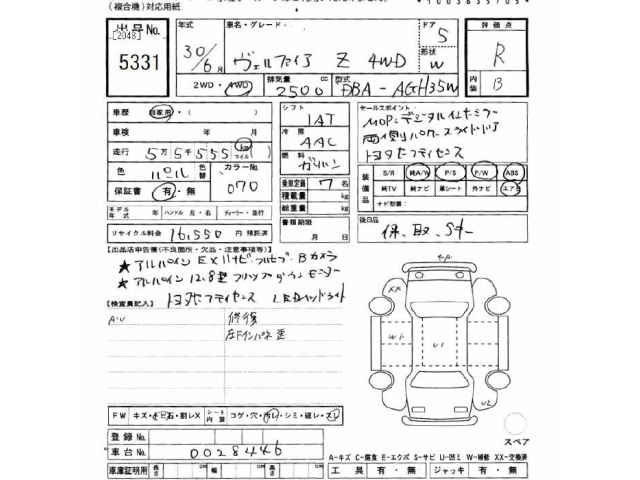 (複合機)対応用紙
出品No.
[2048]
5331
年式
30/6月
車名・グレード
ヴェルファイア Z 4WD
ドア
5
形状
W
評価点
R
内装
B
2WD・4WD
排気量
2500 cc
型式
DBA-AGH35W
車歴
自家用・( )
車検 年 月
走行
5万5千555 km マイル
色
パール
色替
カラーNo.
070
保証書
有・無
モデル年式 年
ハンドル 左・右
ディーラー・並行
リサイクル料金 16,550 円 預託済
シフト
IAT
冷房
AAC
燃料
ガソリン
乗車定員 7 名
積載量 kg
総重量 kg
書類期限
月 日
セールスポイント
MOP:デジタルインナーミラー
両側パワースライドドア
トヨタセーフティセンス
装備品
S/R 純A/W P/S P/W ABS
純TV 純ナビ 革シート 外ナビ エアB
ナビ型番
後日品
保、取、Sキー
[出品店申告欄(不良箇所・欠品・注意事項等)]
★アルパイン EX11ナビ フルセグ Bカメラ
★アルパイン 12.8型 フリップダウンモニター
トヨタセーフティセンス LEDヘッドライト
[検査員記入]
A・U
修復
左Fインパネ歪
XX
U1
U2
スペア
FW キズ・トビ石・割レX
シート内装 コゲ・穴・汚レ・シミ・破レ・スレ
登録No.
車台No. 0028446
車庫証明用 長さ cm 幅 cm 高さ cm
A-キズ C-腐食 E-エクボ S-サビ U-凹ミ W-補修 XX-交換済
工具 有・無 ジャッキ 有・無